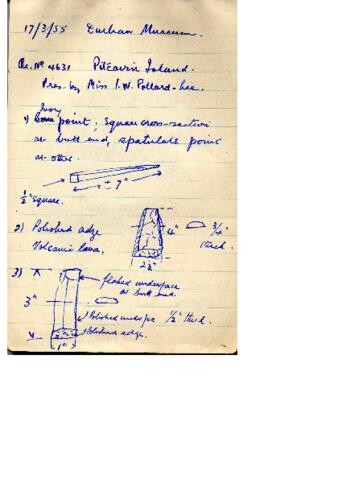 17/3/55 Durban Museum.
Ac. No 4631 Pitcairn Island.
Pres. by Miss I. N. Pollard-Lee.
Ivory
1) Bone point, square cross-section
at butt end, spatulate point
at other
± 7"
½" square.
2) Polished adze
Volcanic lava.
4"
¾"
thick.
2½"
3)
flaked undersurface
at butt end.
3"
Polished undersfce
½" thick
Polished edge.
1"